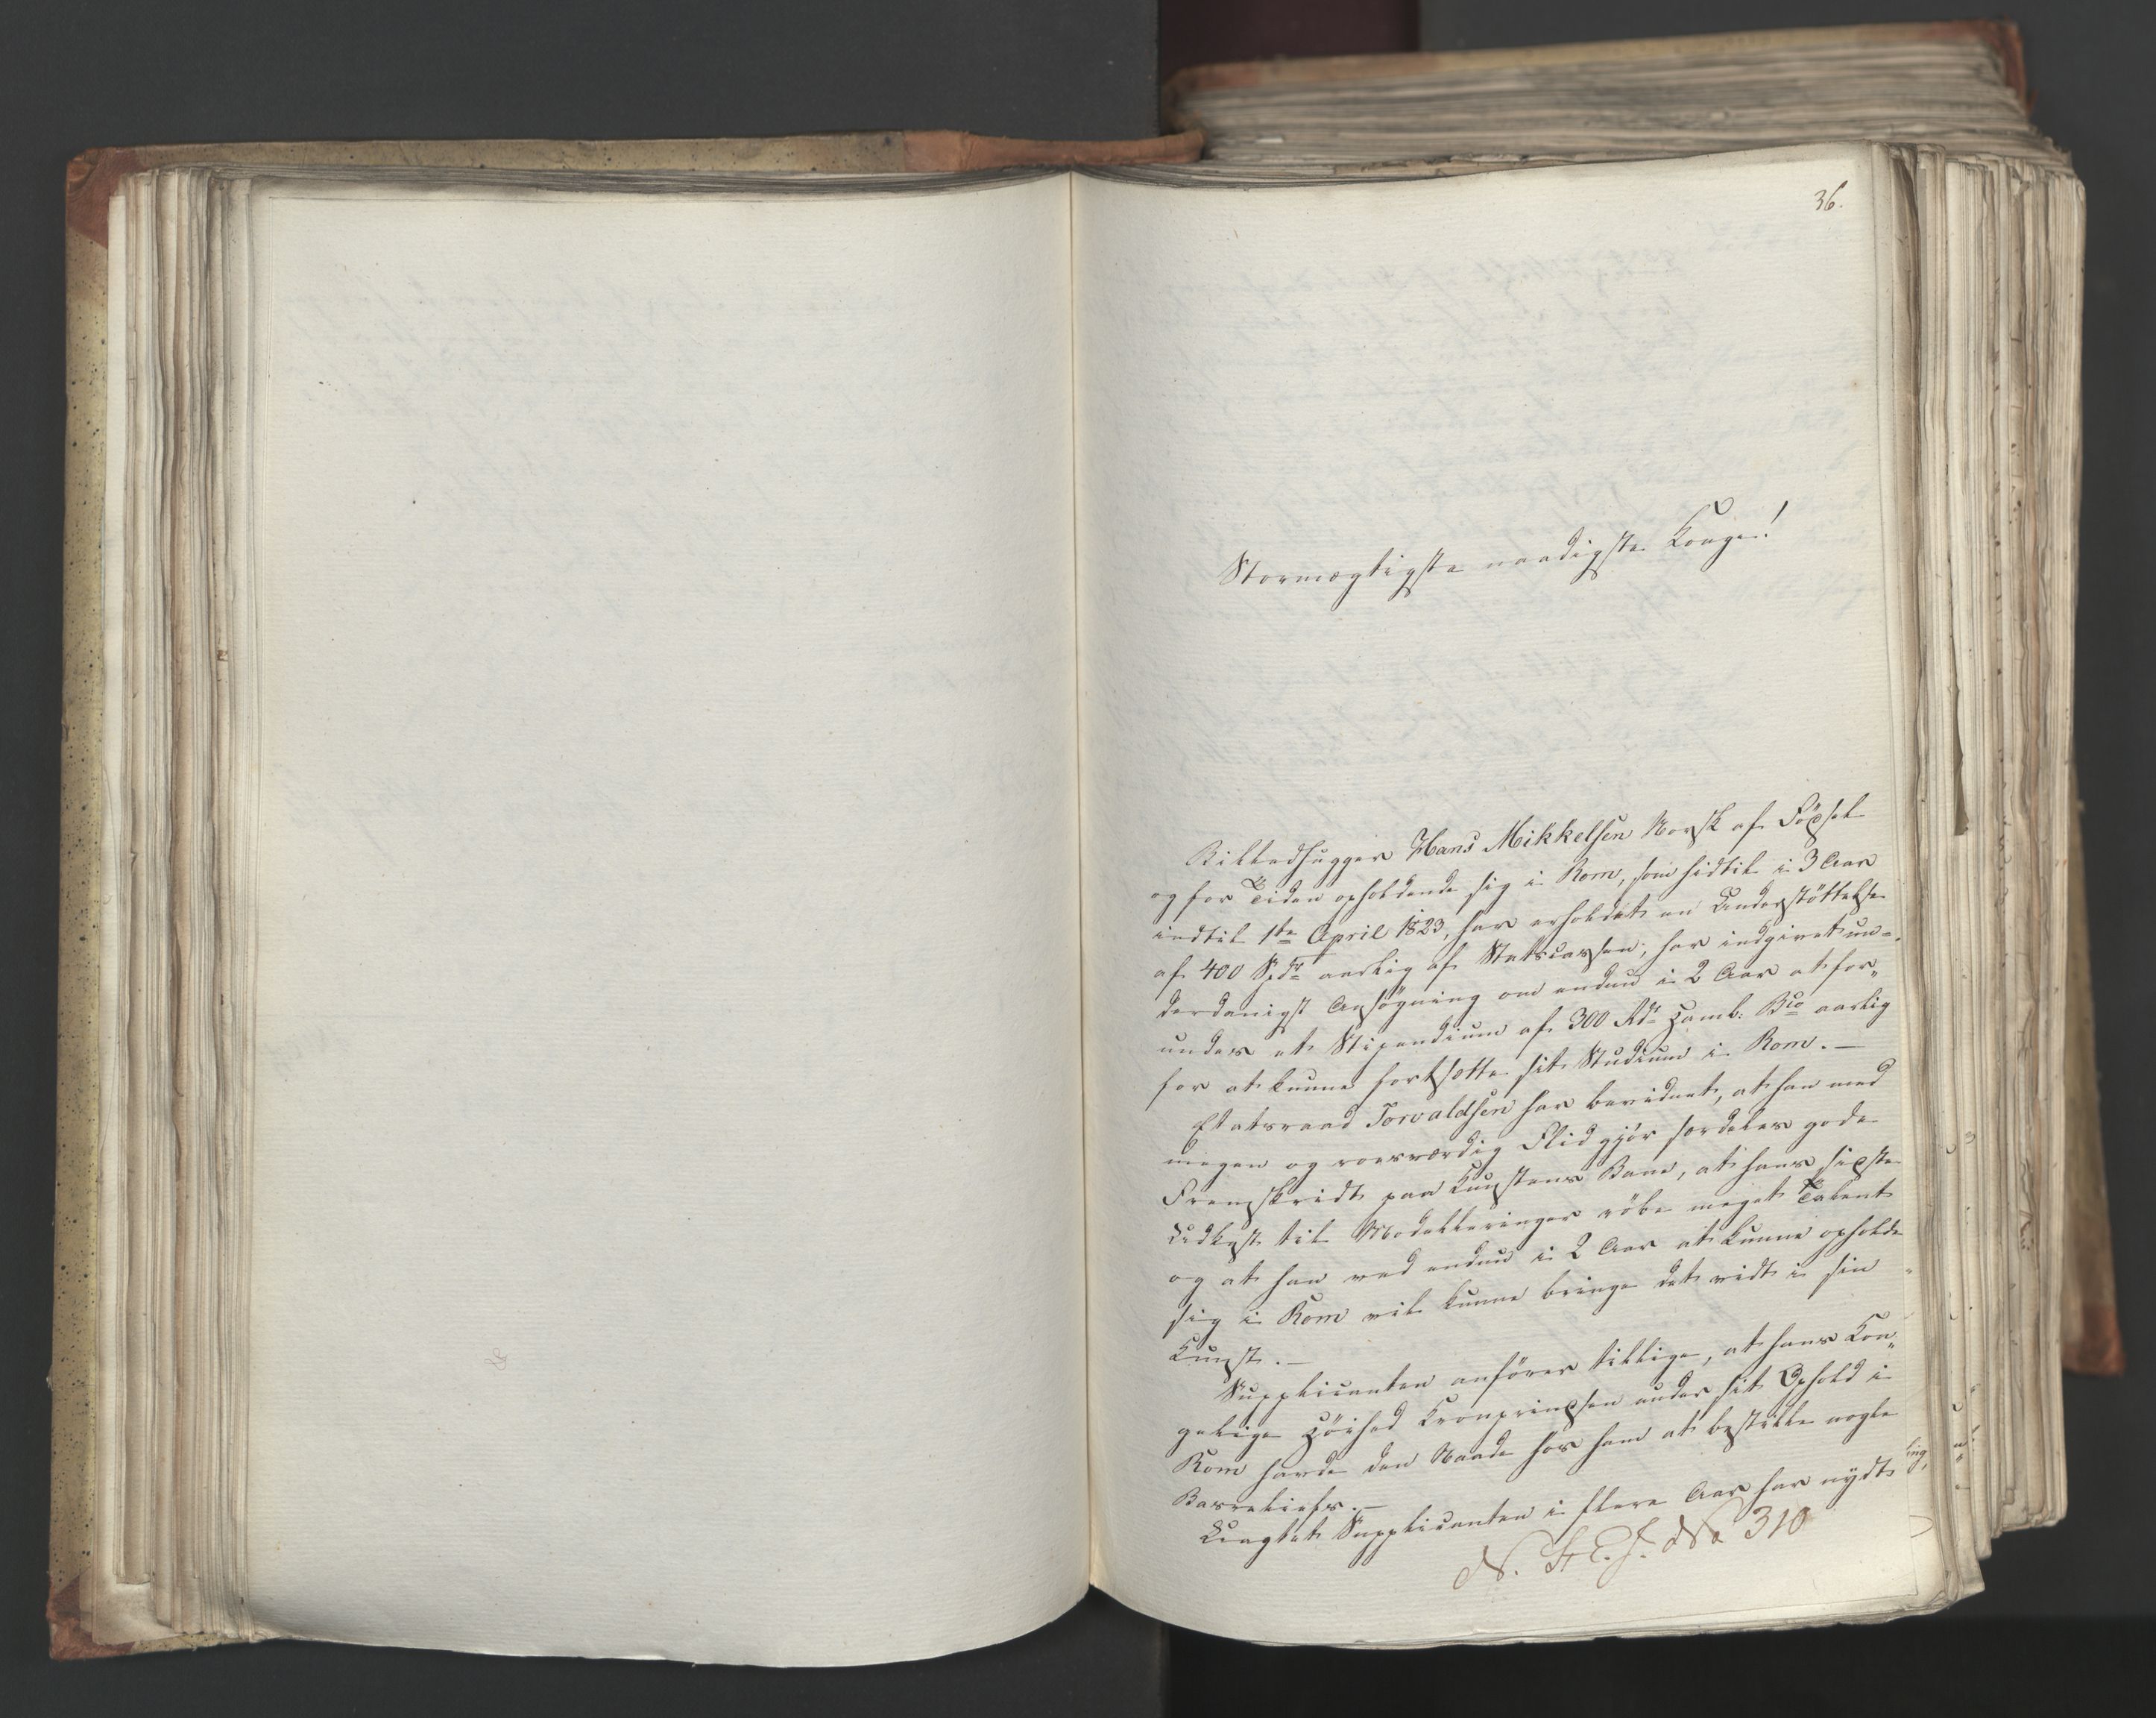 36.
Stormægtigste naadigste Konge!
Billedhugger Hans Mikkelsen Norsk af Födsel
og for Tiden opholdende sig i Rom, som hidtil i 3 Aar
indtil 1ste April 1823, har erholdet en Understöttelse
af 400 Spdr aarlig af Statscassen, har indgivet un-
derdanigst Ansögning om endnu i 2 Aar at for„
undes et Stipendium af 300 Rdr Hamb: Bco aarlig
for at kunne fortsætte sit Studium i Rom.—
Etatsraad Torvaldsen har bevidnet, at han med
megen og roesværdig Flid gjör særdeles gode
Fremskridt paa Kunstens Bane, at hans sidste
Udkast til Modelleringer röbe meget Talent
og at han ved endnu i 2 Aar at kunne opholde
sig i Rom vil kunne bringe det vidt i sin
Kunst.—
Supplicanten anförer tillige, at hans Kon„
gelige Höihed Kronprindsen under sit Ophold i
Rom havde den Naade hos ham at bestille nogle
Basreliefs.—
Uagtet Supplicanten i flere Aar har nydt
N. St. E. J. No 310